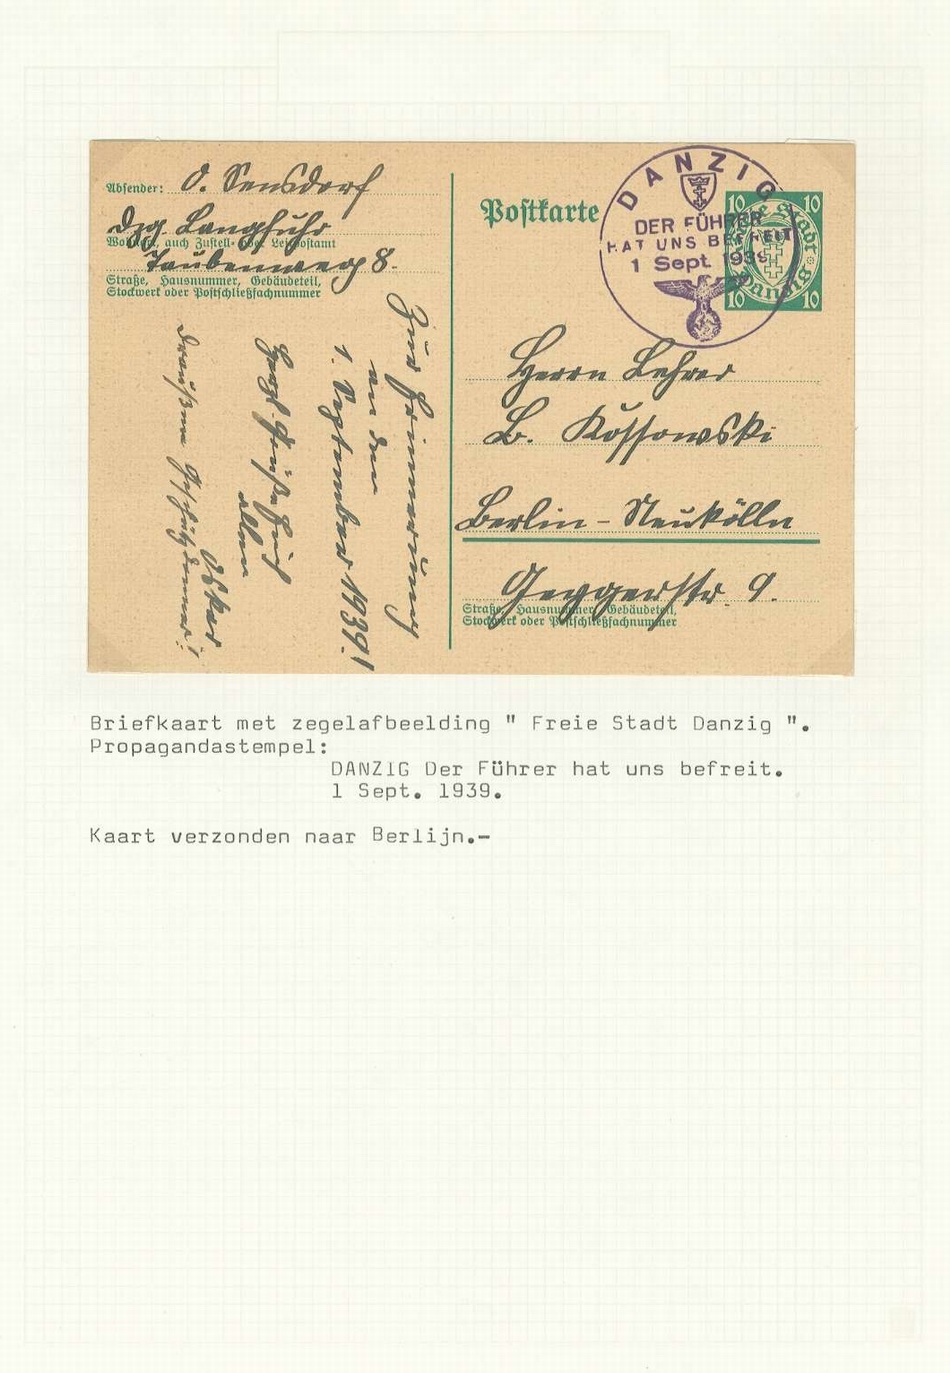 Absender: O. Sensdorf
Dzg. Langfuhr
Wohnort, auch Zustell- oder Leitpostamt
Taubenweg 8.
Straße, Hausnummer, Gebäudeteil,
Stockwerk oder Postschließfachnummer
Zur Erinnerung
an den
1. September 1939!
Herzl. Grüße Euch
allen
Oskar
Draußen Geschützdonner!
Postkarte
DANZIG
DER FÜHRER
HAT UNS BEFREIT
1 Sept. 1939
10 10
Freie Stadt Danzig
10 10
Herrn Lehrer
B. Kossowski
Berlin - Neukölln
Geygerstr. 9.
Straße, Hausnummer, Gebäudeteil,
Stockwerk oder Postschließfachnummer
Briefkaart met zegelafbeelding " Freie Stadt Danzig ".
Propagandastempel:
DANZIG Der Führer hat uns befreit.
1 Sept. 1939.
Kaart verzonden naar Berlijn.-